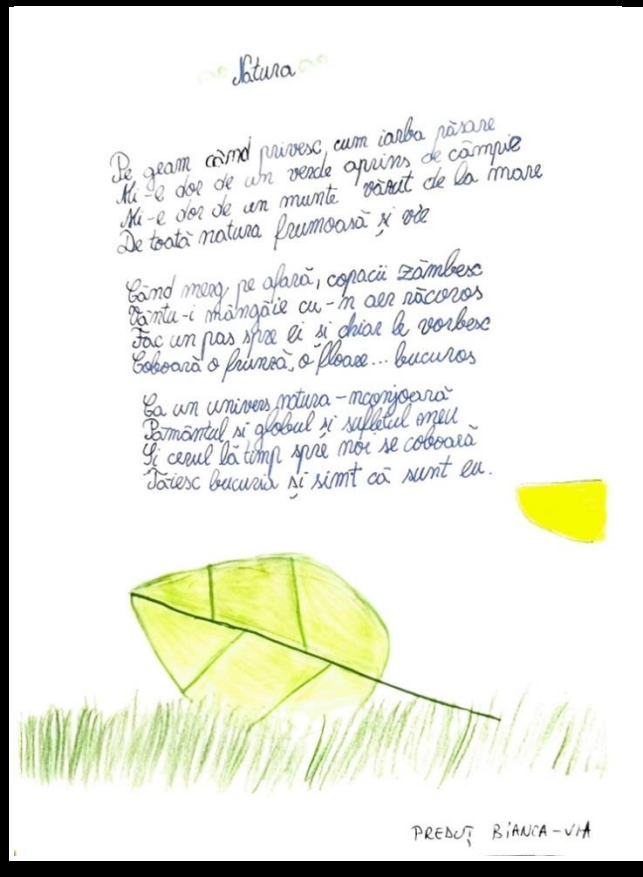 Natura
Pe geam când privesc, cum iarba răsare
Mi-e dor de un verde aprins de câmpie
Mi-e dor de un munte văzut de la mare
De toată natura frumoasă și vie
Când merg pe afară, copacii zâmbesc
Vântu-i mângâie cu-n aer răcoros
Fac un pas spre ei și chiar le vorbesc
Coboară o frunză, o floare... bucuros
Ca un univers natura-nconjoară
Pamântul si globul si sufletul meu
Și cerul la timp spre noi se coboară
Tăiesc bucuria și simt că sunt eu.
PREDUȚ BIANCA-